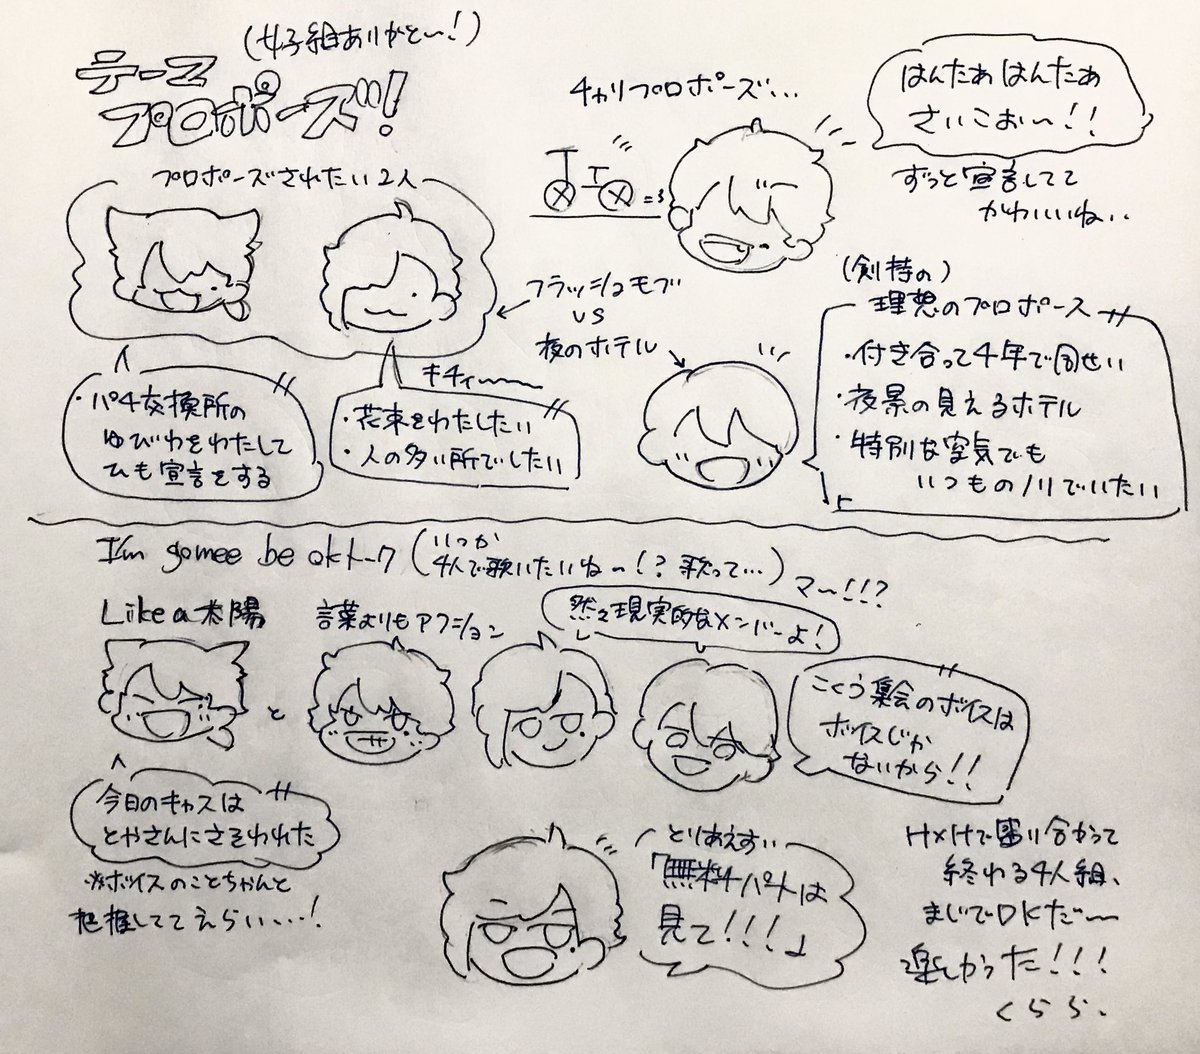 (女子組ありがと〜!)
テーマ
プロポーズ!
プロポーズされたい2人
チャリプロポーズ...
はんたぁはんたぁ
さいこぉ〜!!
ずっと宣言してて
かわいいね..
フラッシュモブ
vs
夜のホテル
・パチ交換所の
ゆびわをわたして
ひも宣言をする
キチィ〜〜
・花束をわたしたい
・人の多い所でしたい
(剣持の)
理想のプロポーズ
・付き合って4年で同せい
・夜景の見えるホテル
・特別な空気でも
いつものノリでいたい
I'm gonee be okトーク
(いつか
4人で歌いたいね〜!?歌って...)
マ〜!!!?
Like a 太陽
と
言葉よりもアクション
然々現実的なメンバーよ!
こくう集会のボイスは
ボイスじか
ないから!!
今日のキャスは
とやさんにさそわれた
※ボイスのことちゃんと
把握しててえらい...!
とりあえずい
「無料パートは
見て!!!」
H×Hで語り合かって
終わる4人組、
まじでDKだ〜
楽しかった!!!
くらら、